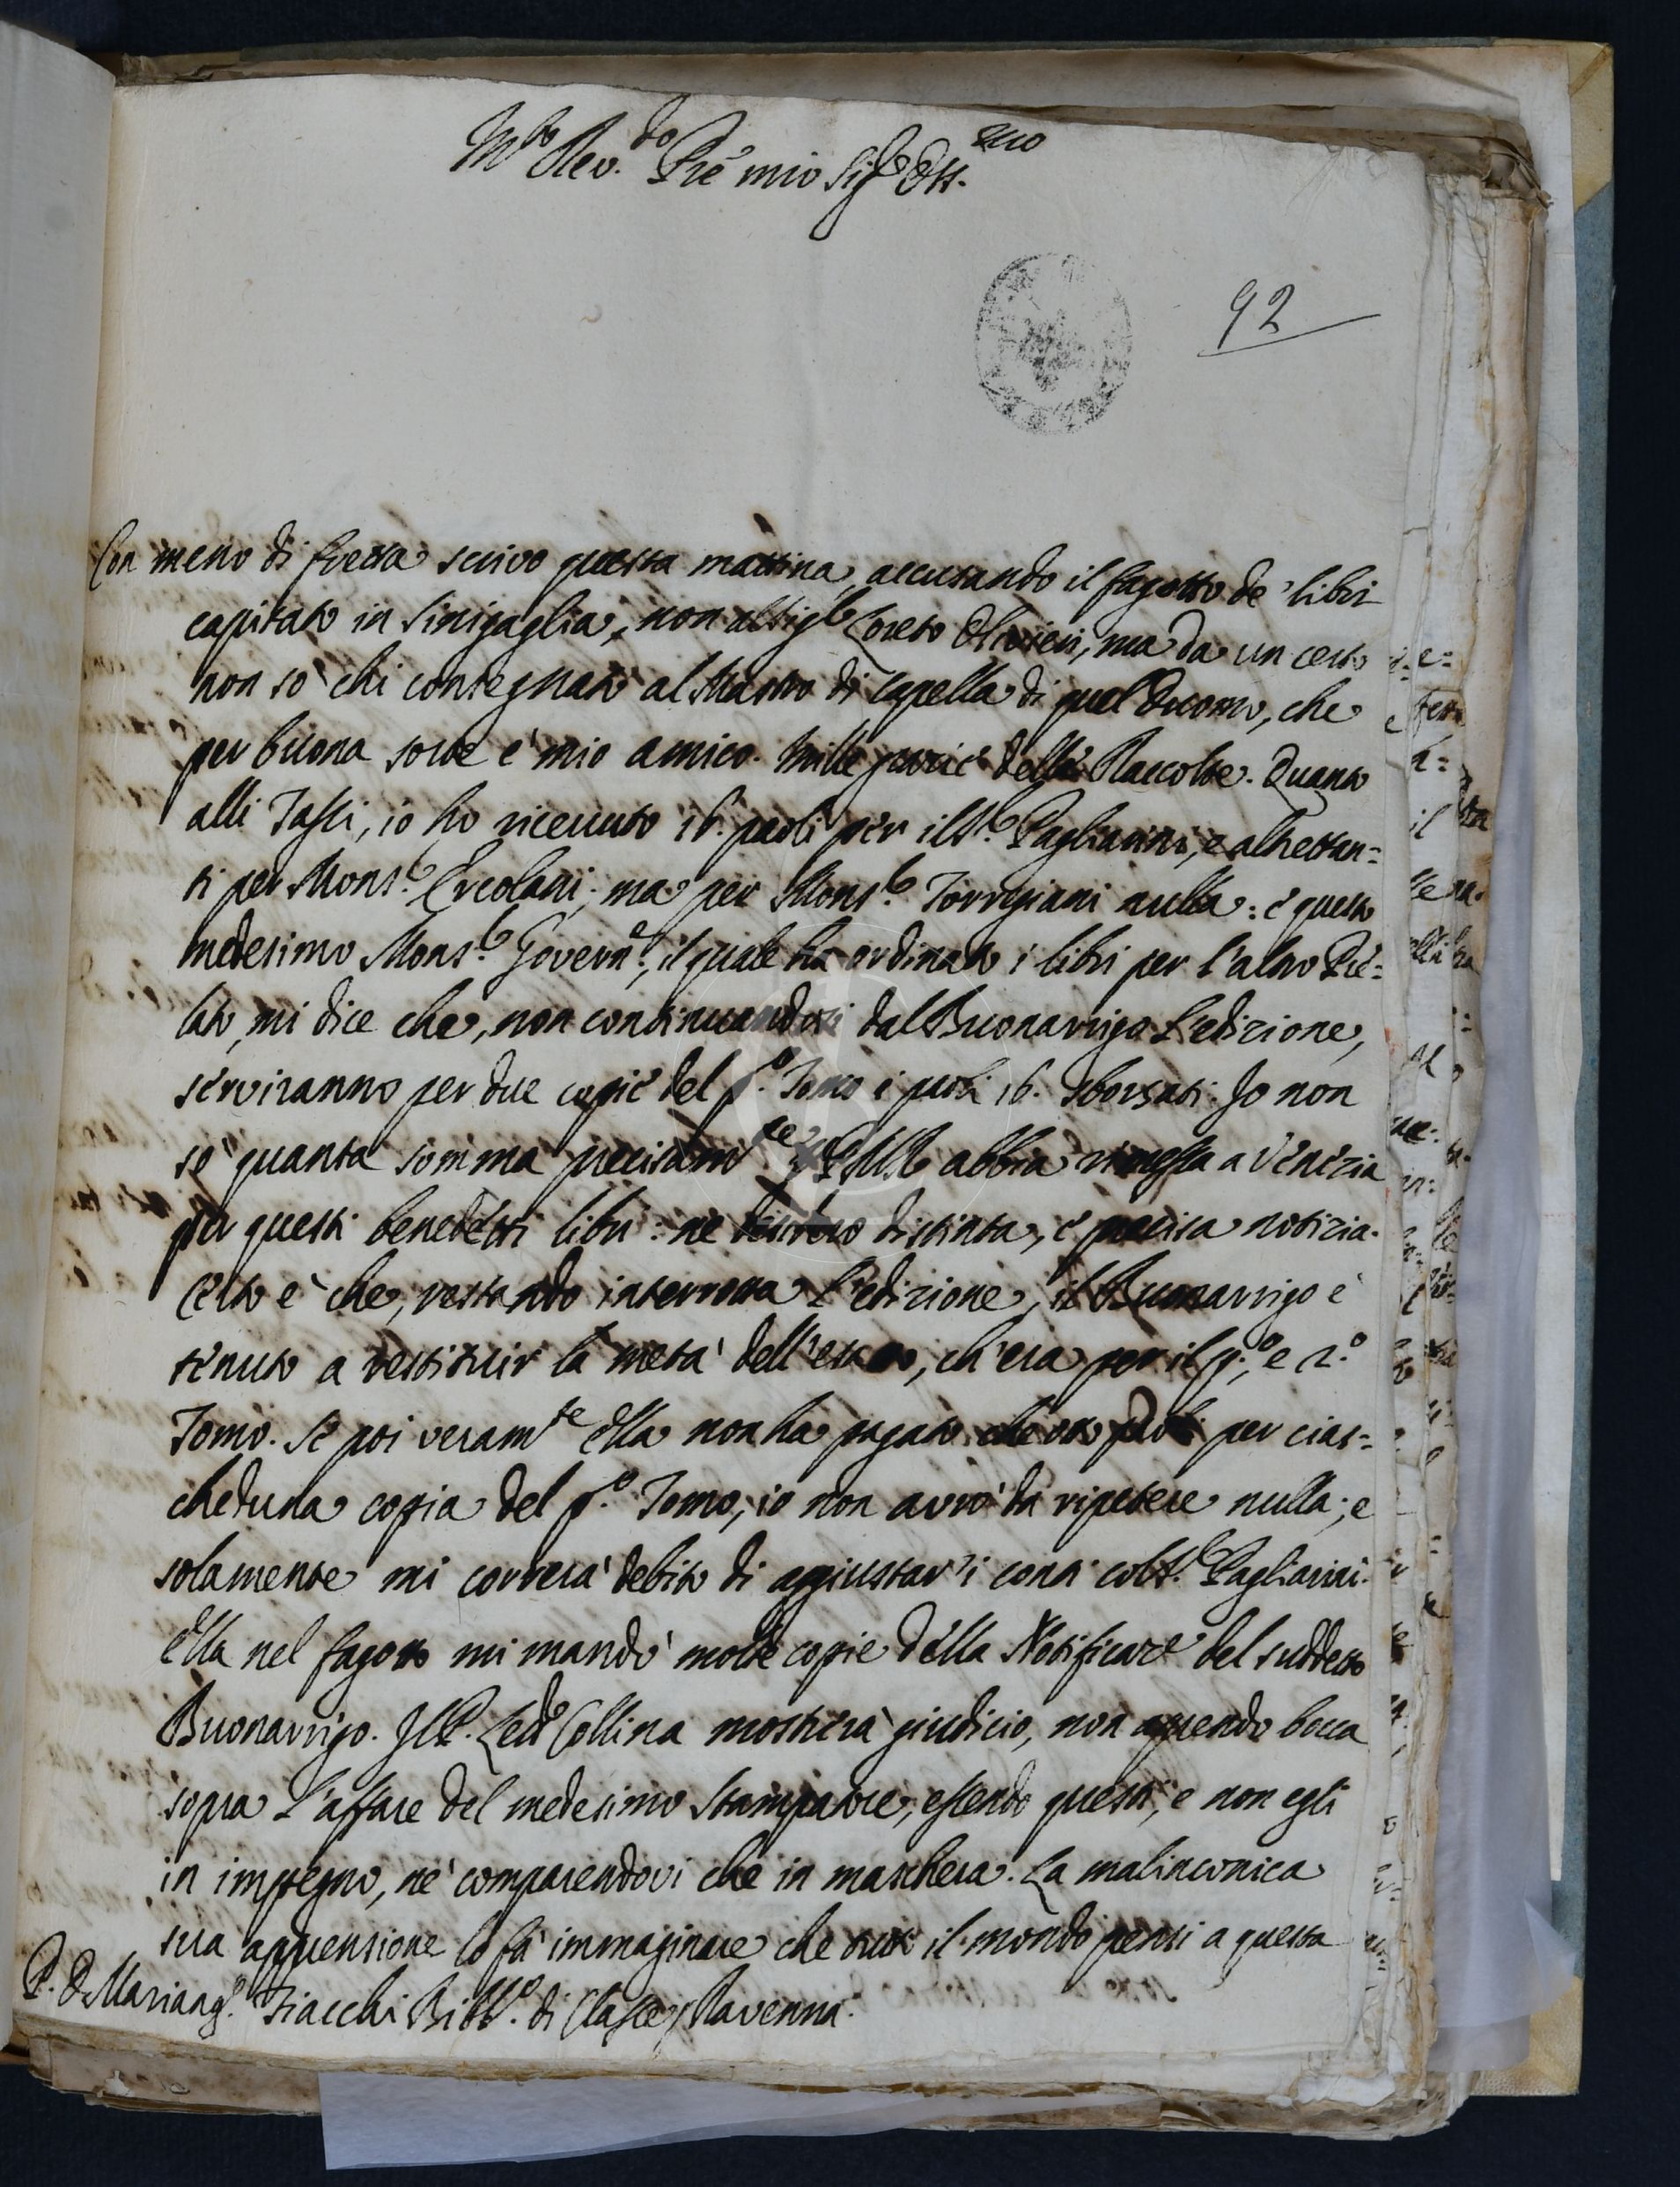 M.to Rev.do Pre mio Sig.r Oss.mo
92
Con meno di fretta scrivo questa mattina, accusando il fagotto de' libri
capitato in Sinigaglia, non al Sig.r Loreto Olivieri, ma da un certo
non so chi consegnato al Mastro di Capella di quel Duomo, che
per buona sorte è mio amico. Mille grazie delle Raccolte. Quanto
alli Tassi, io ho ricevuto 16. paoli per il S.r Pagliarini, e altrettan=
ti per Mons.r Ercolani; ma per Mons.r Torrigiani nulla: e questo
medesimo Mons.r Govern.e, il quale ha ordinato i libri per l'altro Pre=
lato, mi dice che, non continuandosi dal Buonarrigo l'edizione,
serviranno per due copie del p.o Tomo i paoli 16. sborsati. Io non
so quanta somma precisam.te V. P. M. R. abbia rimessa a Venezia
per questi benedetti libri: ne desidero distinta, e precisa notizia.
Certo è che, restando interrotta l'edizione, il Buonarrigo è
tenuto a restituir la metà dell'esatto, ch'era per il p.o, e 2.o
Tomo. Se poi veram.te Ella non ha pagato che otto paoli per cias=
cheduna copia del p.o Tomo, io non avrò da ripetere nulla; e
solamente mi correrà debito di aggiustar i conti col S.r Pagliarini.
Ella nel fagotto mi mandò molte copie della Notificaz.e del suddetto
Buonarrigo. Il P. Let.e Collina mostrerà giudicio, non aprendo bocca
sopra l'affare del medesimo Stampatore, essendo questi, e non egli
in impegno, nè comparendovi che in maschera. La malinconica
sua apprensione lo fà immaginare che tutto il mondo pensi a questa
P. D. Mariang.o Fiacchi Bibl.o di Classe / Ravenna.